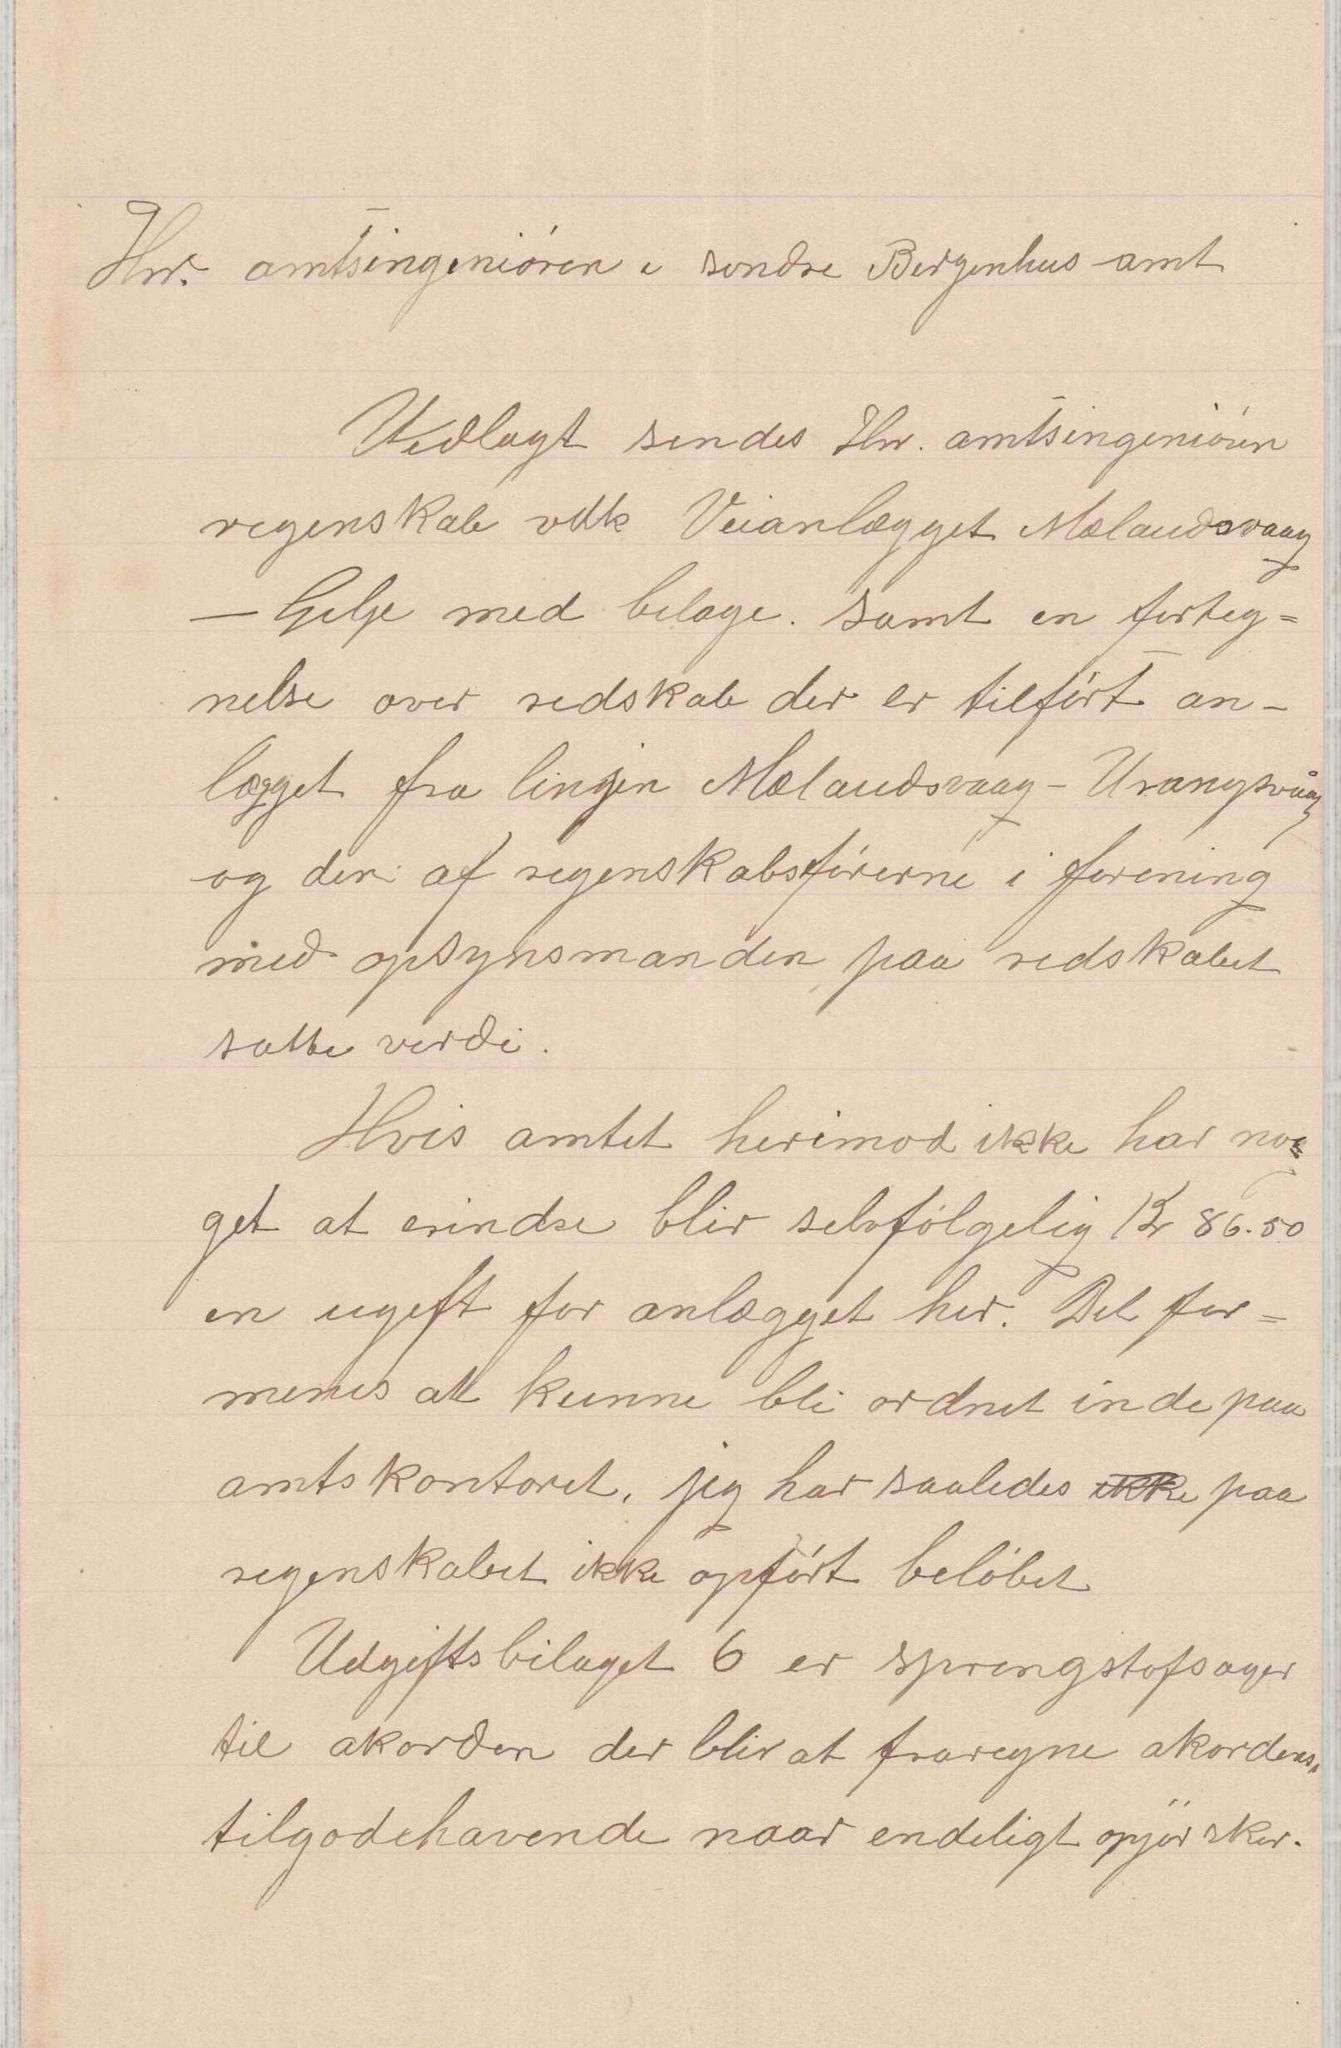 Hr. amtsingeniören i söndre Bergenhus amt
Vedlagt sendes Hr. amtsingeniören
regenskab vdk Veianlægget Mælandsvaag
— Gilje med bilage. samt en forteg=
nelse over redskab der er tilfört an-
lægget fra linjen Mælandsvaag - Urangsvåg
og den af regenskabsförerne i forening
med opsynsmanden paa redskabet
satte verdi.
Hvis amtet herimod ikke har noe
get at erindre blir selvfölgelig Kr 86.50
en ugift for anlægget her. Det for=
menes at kunne bli ordnet inde paa
amtskontoret, jeg har saaledes ikke paa
regenskabet ikke opfört belöbet
Udgiftsbilaget 6 er sprengstofsager
til akorden der blir at fraregne akordens
tilgodehavende naar endeligt opjör sker.